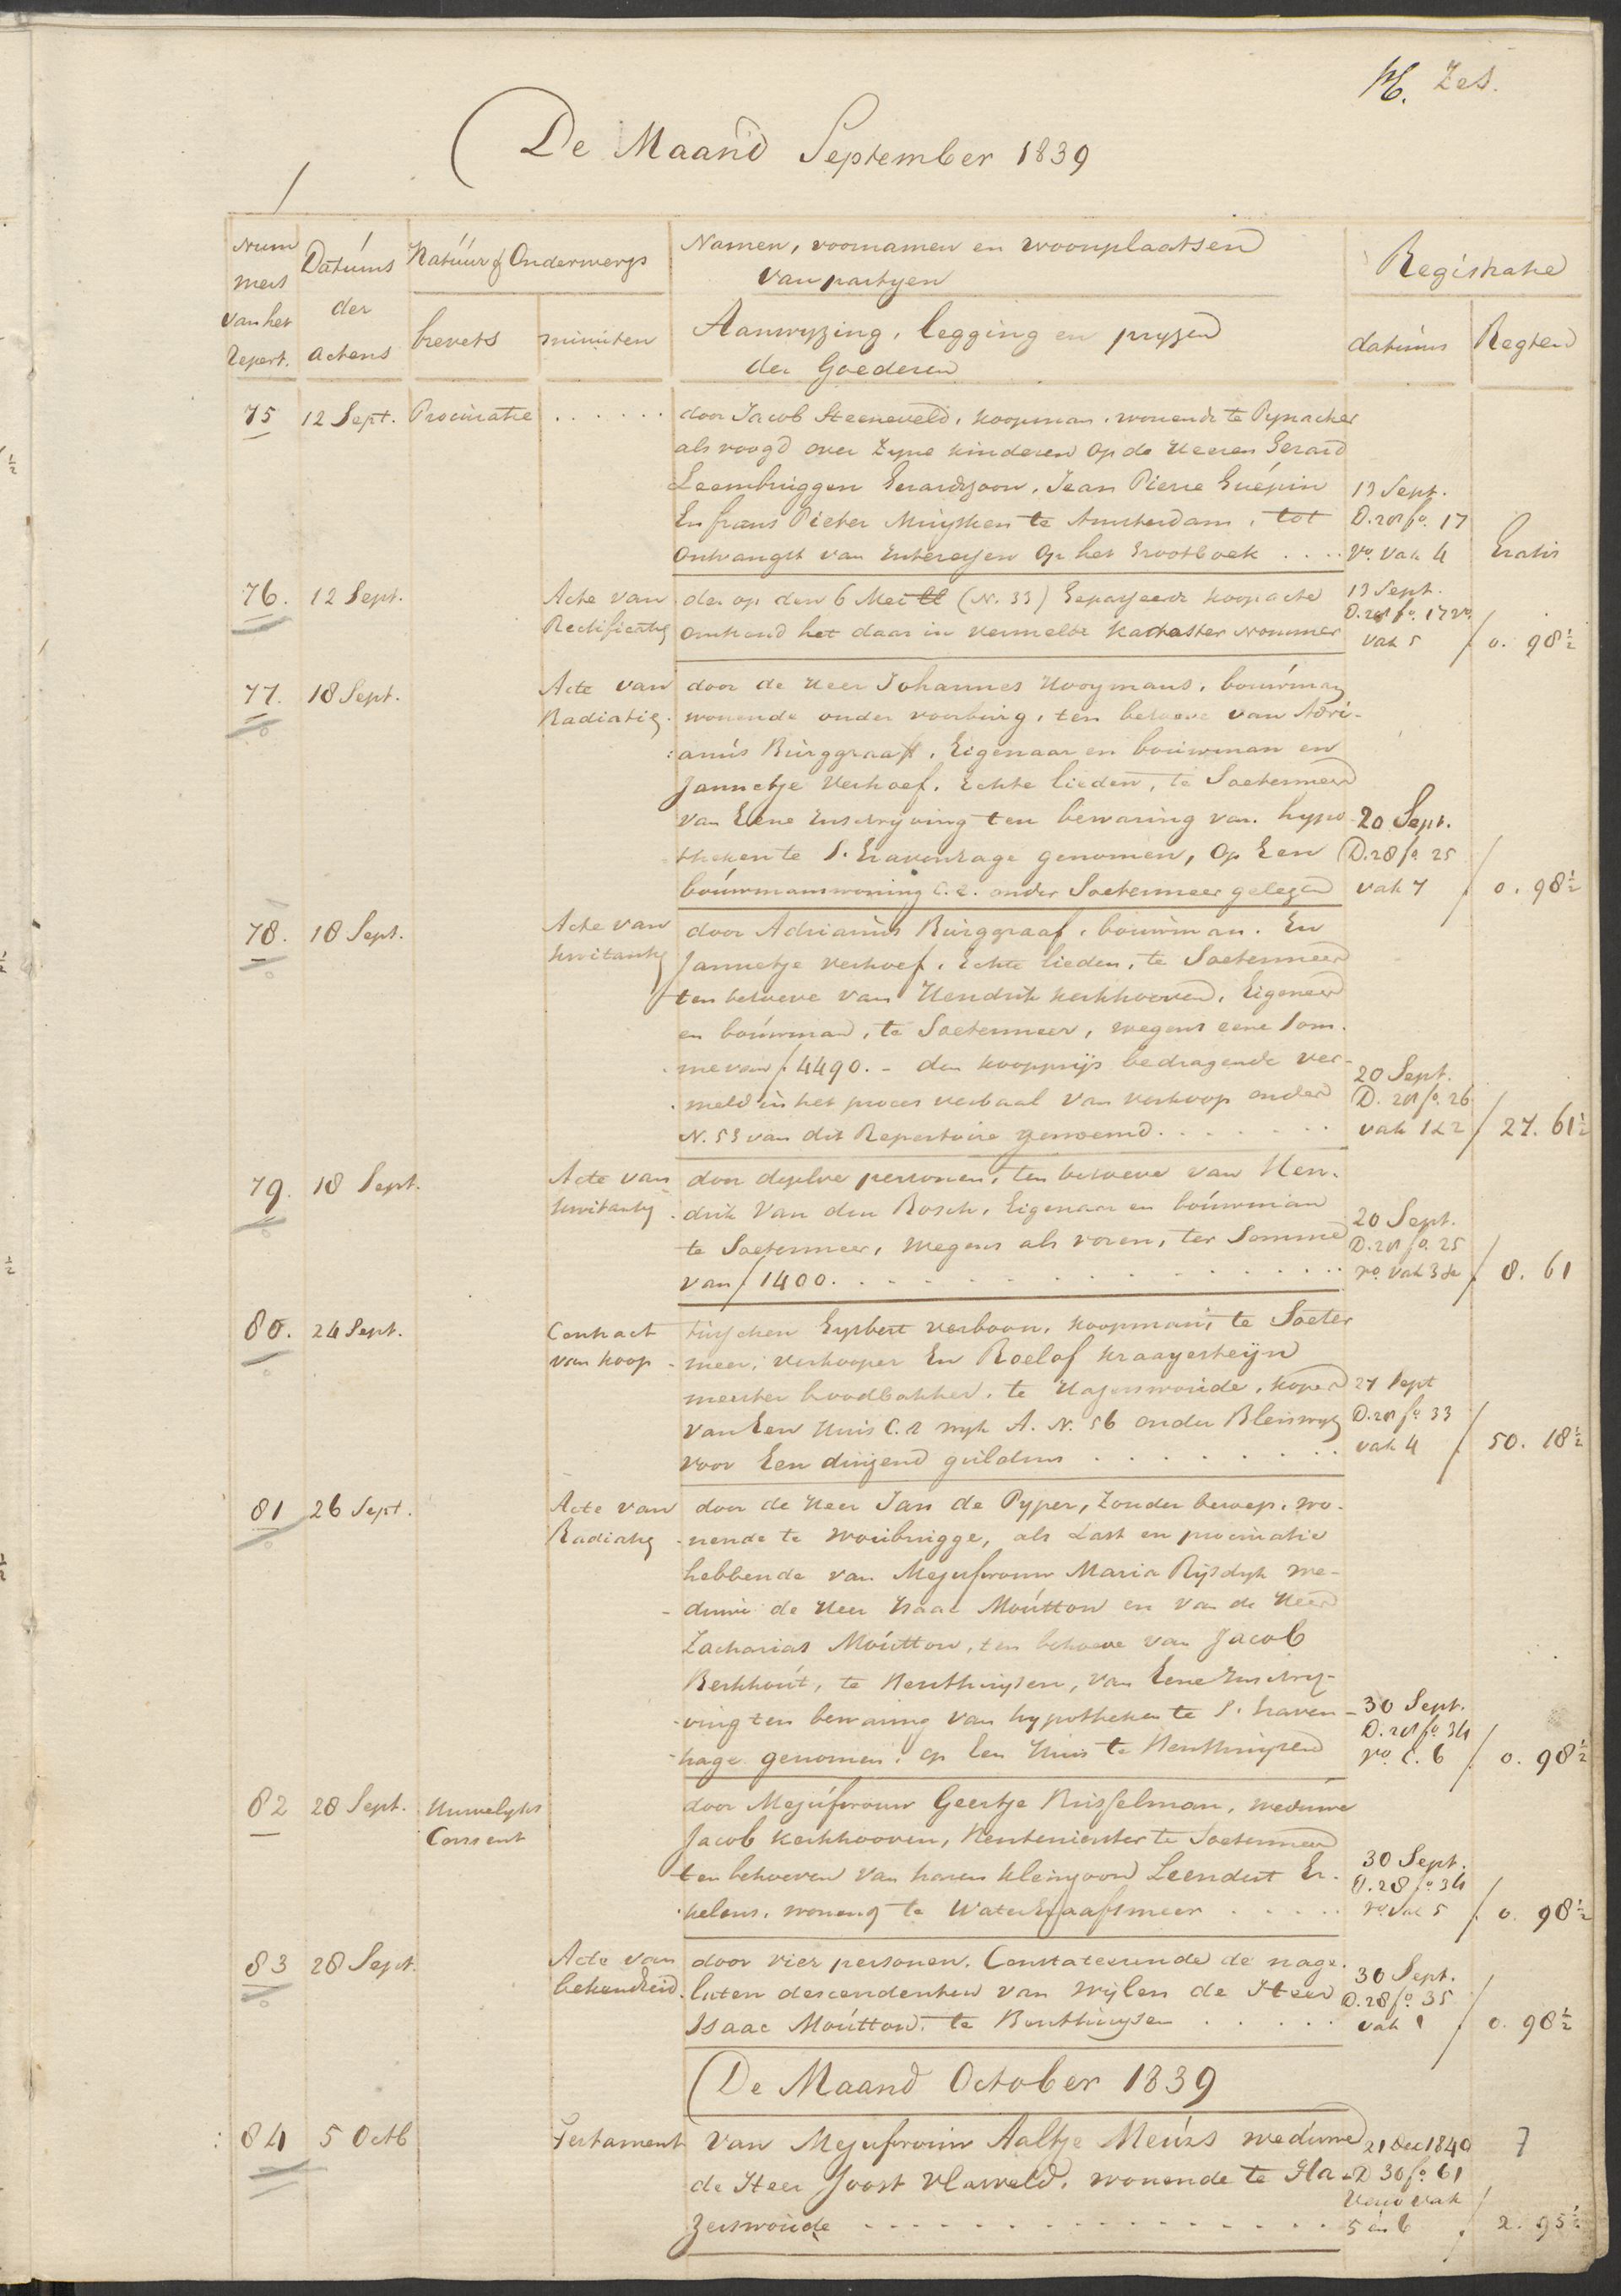 Zes.
De Maand September 1839
Nummers van het Repert.
Datums der actens
Natuur & Onderwerp
brevets
minuten
Namen, voornamen en woonplaatsen
van partyen
Aanwyzing, legging en pryzen
der Goederen
Registratie
datums
Regten
75 12 Sept. Procuratie . . . . . . door Jacob Steeneveld, koopman, wonende te Pynacker
als voogd over zyne kinderen op de Heeren Gerard
Leembruggen Gerardszoon, Jean Pierre Guépin 13 Sept.
En frans Pieter Muysken te Amsterdam, tot D. 28 fo. 17
Ontvangst van Interessen Op het Grootboek . . . . vo. vak 4 Gratis
76. 12 Sept. Acte van der op den 6 Mei ll (N. 33) Gepasseerde koopacte 13 Sept.
Rectificatie omtrend het daar in vermelde kadaster nommer D. 28 fo. 17 vo.
vak 5 f 0. 98 ½
77. 18 Sept. Acte van door de Heer Johannes Hooymans, bouwman
Radiatie. wonende onder voorburg, ten behoeve van Adri-
:anus Burggraaff, Eigenaar en bouwman en
Jannetje Verhoef, Echte lieden, te Soetermeer
van Eene Inschryving ten bewaring van hypo- 20 Sept.
theken te S. Gravenhage genomen, Op Een D. 28 fo 25
bouwmanswoning c.a. onder Soetermeer gelegen vak 7 f 0. 98 ½
78. 18 Sept. Acte van door Adrianus Burggraaf, bouwman. En
kwitantie Jannetje verhoef, Echte lieden, te Soetermeer
ten behoeve van Hendrik kerkhooven, Eigeneer
en bouwman, te Soetermeer, wegens eene Som-
me van f 4490. - den koopprijs bedragende ver- 20 Sept.
meld in het proces verbaal van verkoop onder D. 28 fo. 26
N. 53 van dit Repertoire genoemd. . . . . . . vak 1 & 2 f 27. 61 ½
79. 18 Sept. Acte van door dezelve personen, ten behoeve van Hen-
kwitantie drik Van den Bosch, Eigenaar en bouwman 20 Sept.
te Soetermeer, wegens als voren, ter Somme D. 28 fo. 25
van f 1400. . . . . . . . . . . . . . vo. vak 3 & f 8. 61
80. 24 Sept. Contract tusschen Gysbert verboon, koopman, te Soeter
van koop - meer, verkooper En Roelof kraayesteijn
meester broodbakker, te Hazerswoude, koper 27 Sept
van Een Huis c.a wyk A. N. 56 onder Bleiswyk D. 28 fo 33
voor Een duizend guldens . . . . . . . . vak 4 f 50. 18 ½
81 26 Sept. Acte van door de Heer Jan de Pyper, Zonder beroep, wo-
Radiatie nende te woubrugge, als Last en procuratie
hebbende van Mejufvrouw Maria Rijsdyk we-
duwe de Heer Isaac Moutton en van de Heer
Zacharias Moutton, ten behoeve van Jacob
Berkhout, te Benthuysen, van Eene Inschry-
ving ten bewaring van hypotheken te S. Graven- 30 Sept.
hage genomen, op Een Huis te Benthuysen D. 28 fo 34
vo c. 6 f 0. 98 ½
82 28 Sept. Huwelyks door Mejufvrouw Geertje Russelman, weduwe
Consent Jacob kerkhooven, Rentenierster te Soetermeer
ten behoeven van haren kleinzoon Leendert Er- 30 Sept.
kelens, wonend te Watergraafsmeer . . . . . D. 28 fo 34
vo. vak 5 f 0. 98 ½
83 28 Sept. Acte van door vier personen, Constateerende de nage-
bekendheid. laten descendenten van wylen de Heer 30 Sept.
Isaac Moutton, te Benthuysen . . . . . D. 28 fo. 35
vak 1 f 0. 98 ½
De Maand October 1839
84 5 Octb Testament van Mejufvrouw Aaltje Meurs weduwe 21 Dec 1840
de Heer Joost Vlasveld, wonende te Ha- D 30 fo. 61
zerswoude . . . . . . . . . . . . . . verso vak
5 en 6 f 2. 95 ½